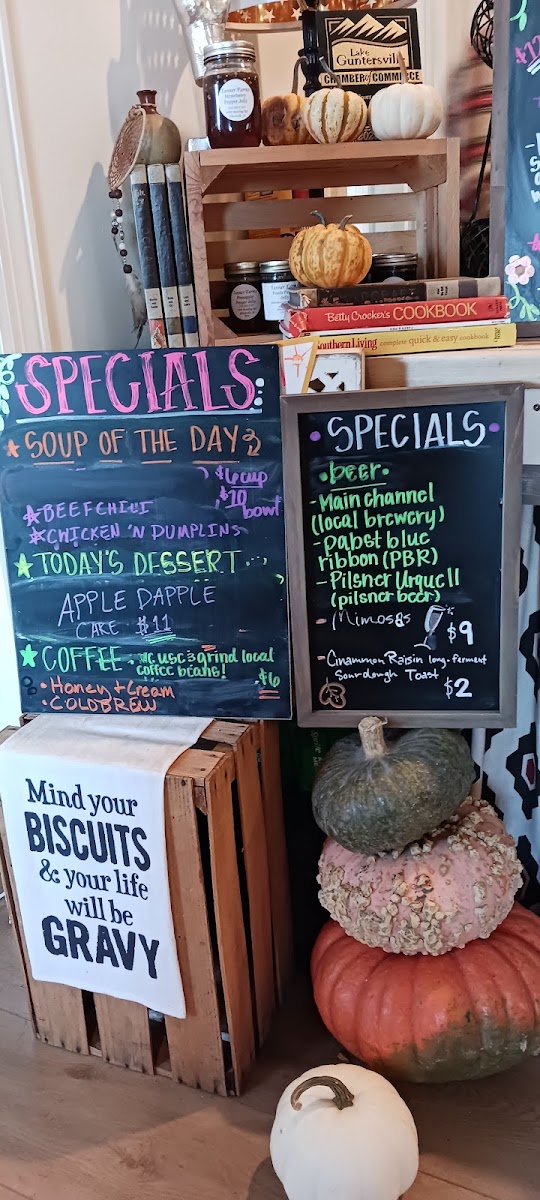 Lake
Guntersville
CHAMBER of COMMERCE
Pepper Jelly
Betty Crocker's COOKBOOK
Southern Living complete quick & easy cookbook
SPECIALS
SOUP OF THE DAY
$6 cup
$10 bowl
BEEF CHILI
CHICKEN 'N DUMPLINS
TODAY'S DESSERT
APPLE DAPPLE
CAKE $11
COFFEE • We use & grind local
coffee beans!
$6
• Honey + Cream
• COLDBREW
• SPECIALS •
• beer •
- Main channel
(local brewery)
- Pabst blue
ribbon (PBR)
- Pilsner Urquell
(pilsner beer)
- Mimosas
$9
- Cinnamon Raisin long-ferment
Sourdough Toast
$2
Mind your
BISCUITS
& your life
will be
GRAVY